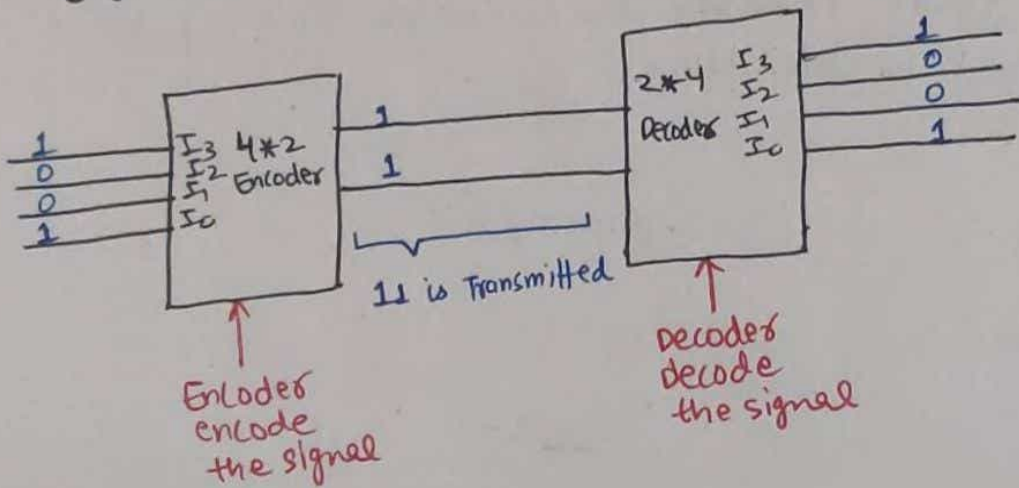 1
0
0
1
I3
I2
I1
I0
4*2
Encoder
1
1
11 is Transmitted
2*4
Decoder
I3
I2
I1
I0
1
0
0
1
Encoder
encode
the signal
Decoder
decode
the signal